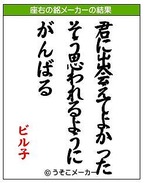 座右の銘メーカーの結果
君に出会えてよかった
そう思われるように
がんばる
ビル子
©うそこメーカー